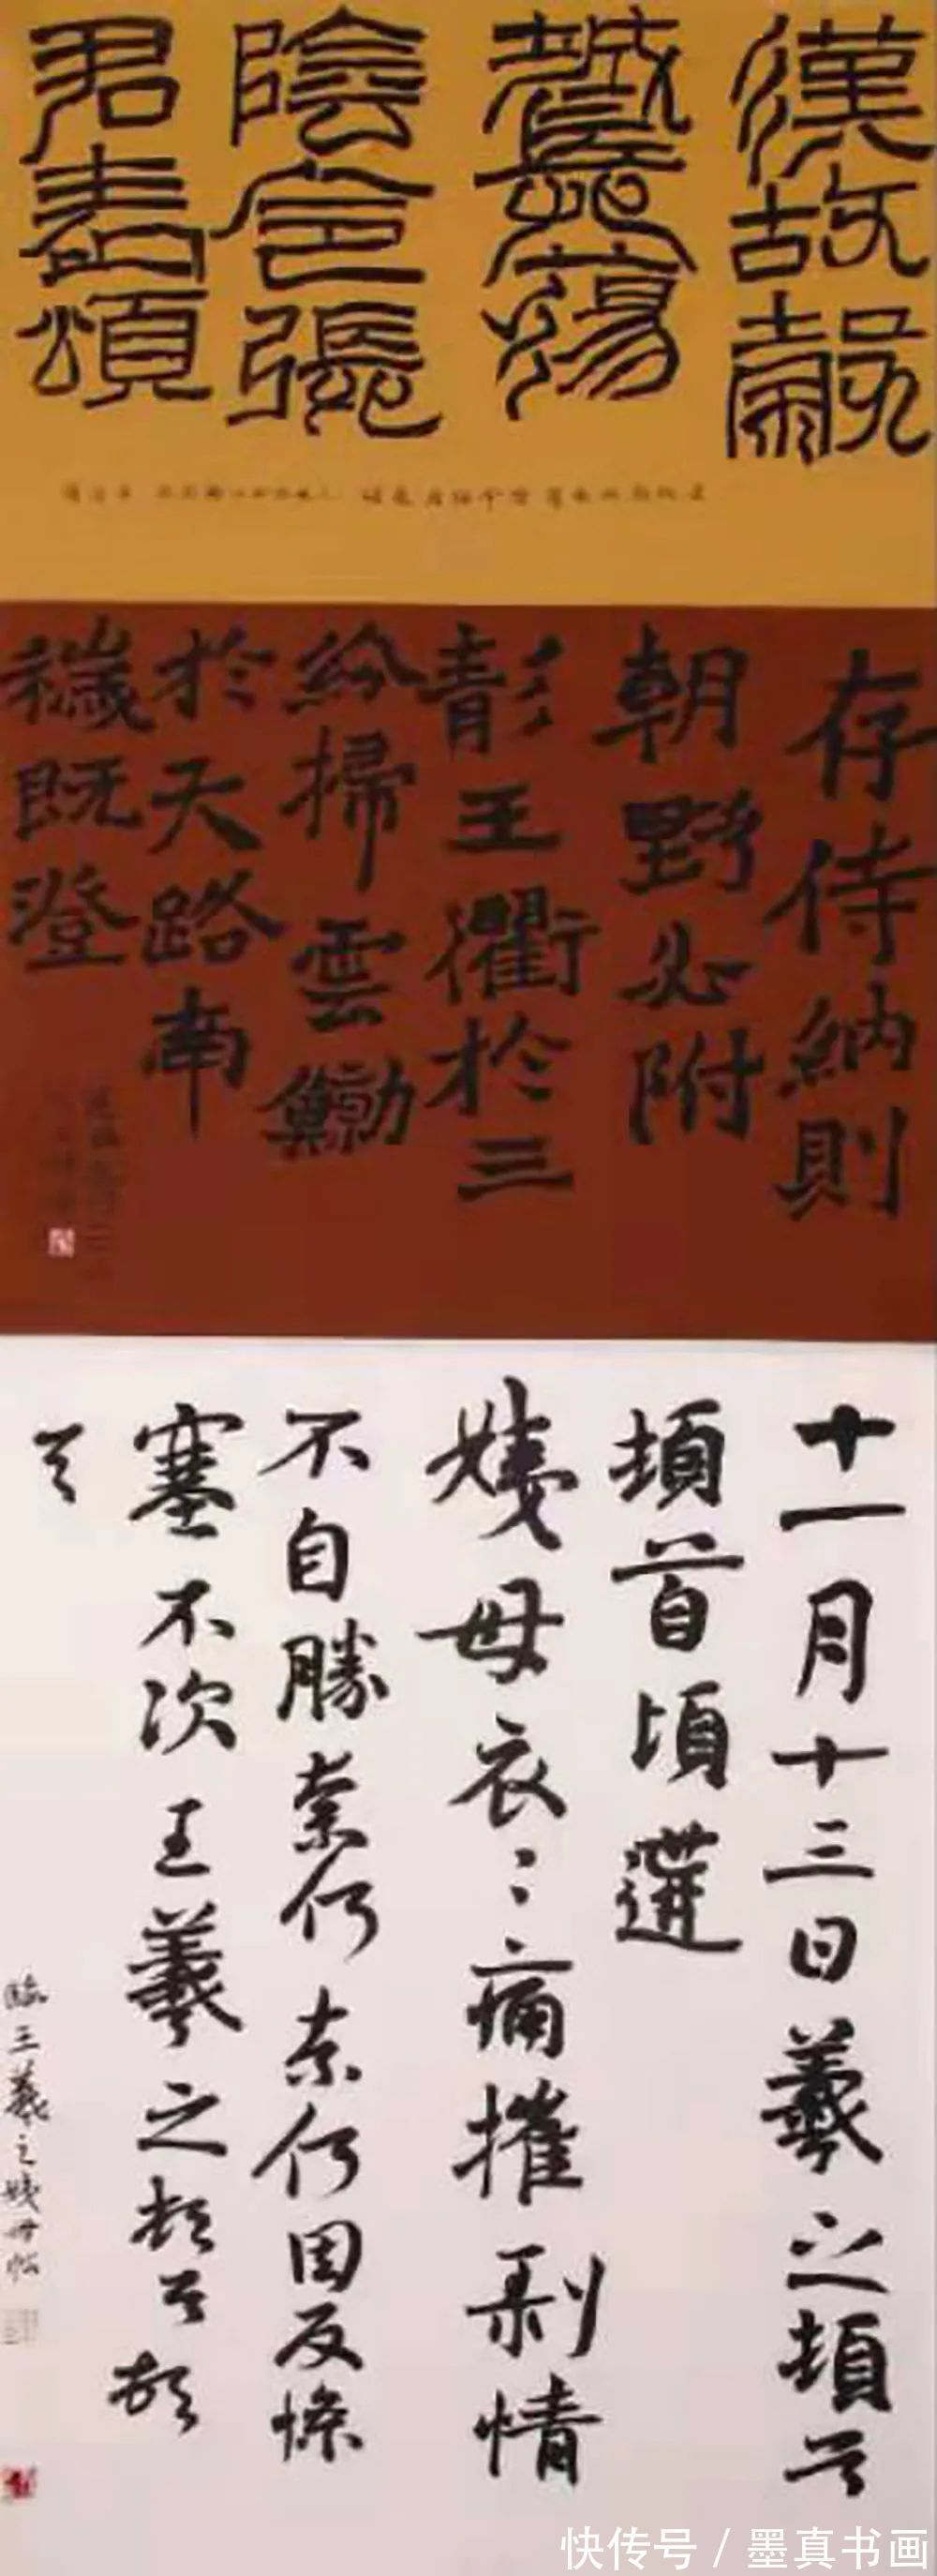 漢故穀
城長蕩
陰令張
君表頌
存侍納則
朝野必附
彰王衢於三
紛掃雲勳
於天路南
穢既澄
十一月十三日羲之頓首
頓首頃遘
姨母哀〻痛摧剝情
不自勝奈何奈何因反慘
塞不次王羲之頓首頓
首
臨王羲之姨母帖
快传号 / 墨真书画